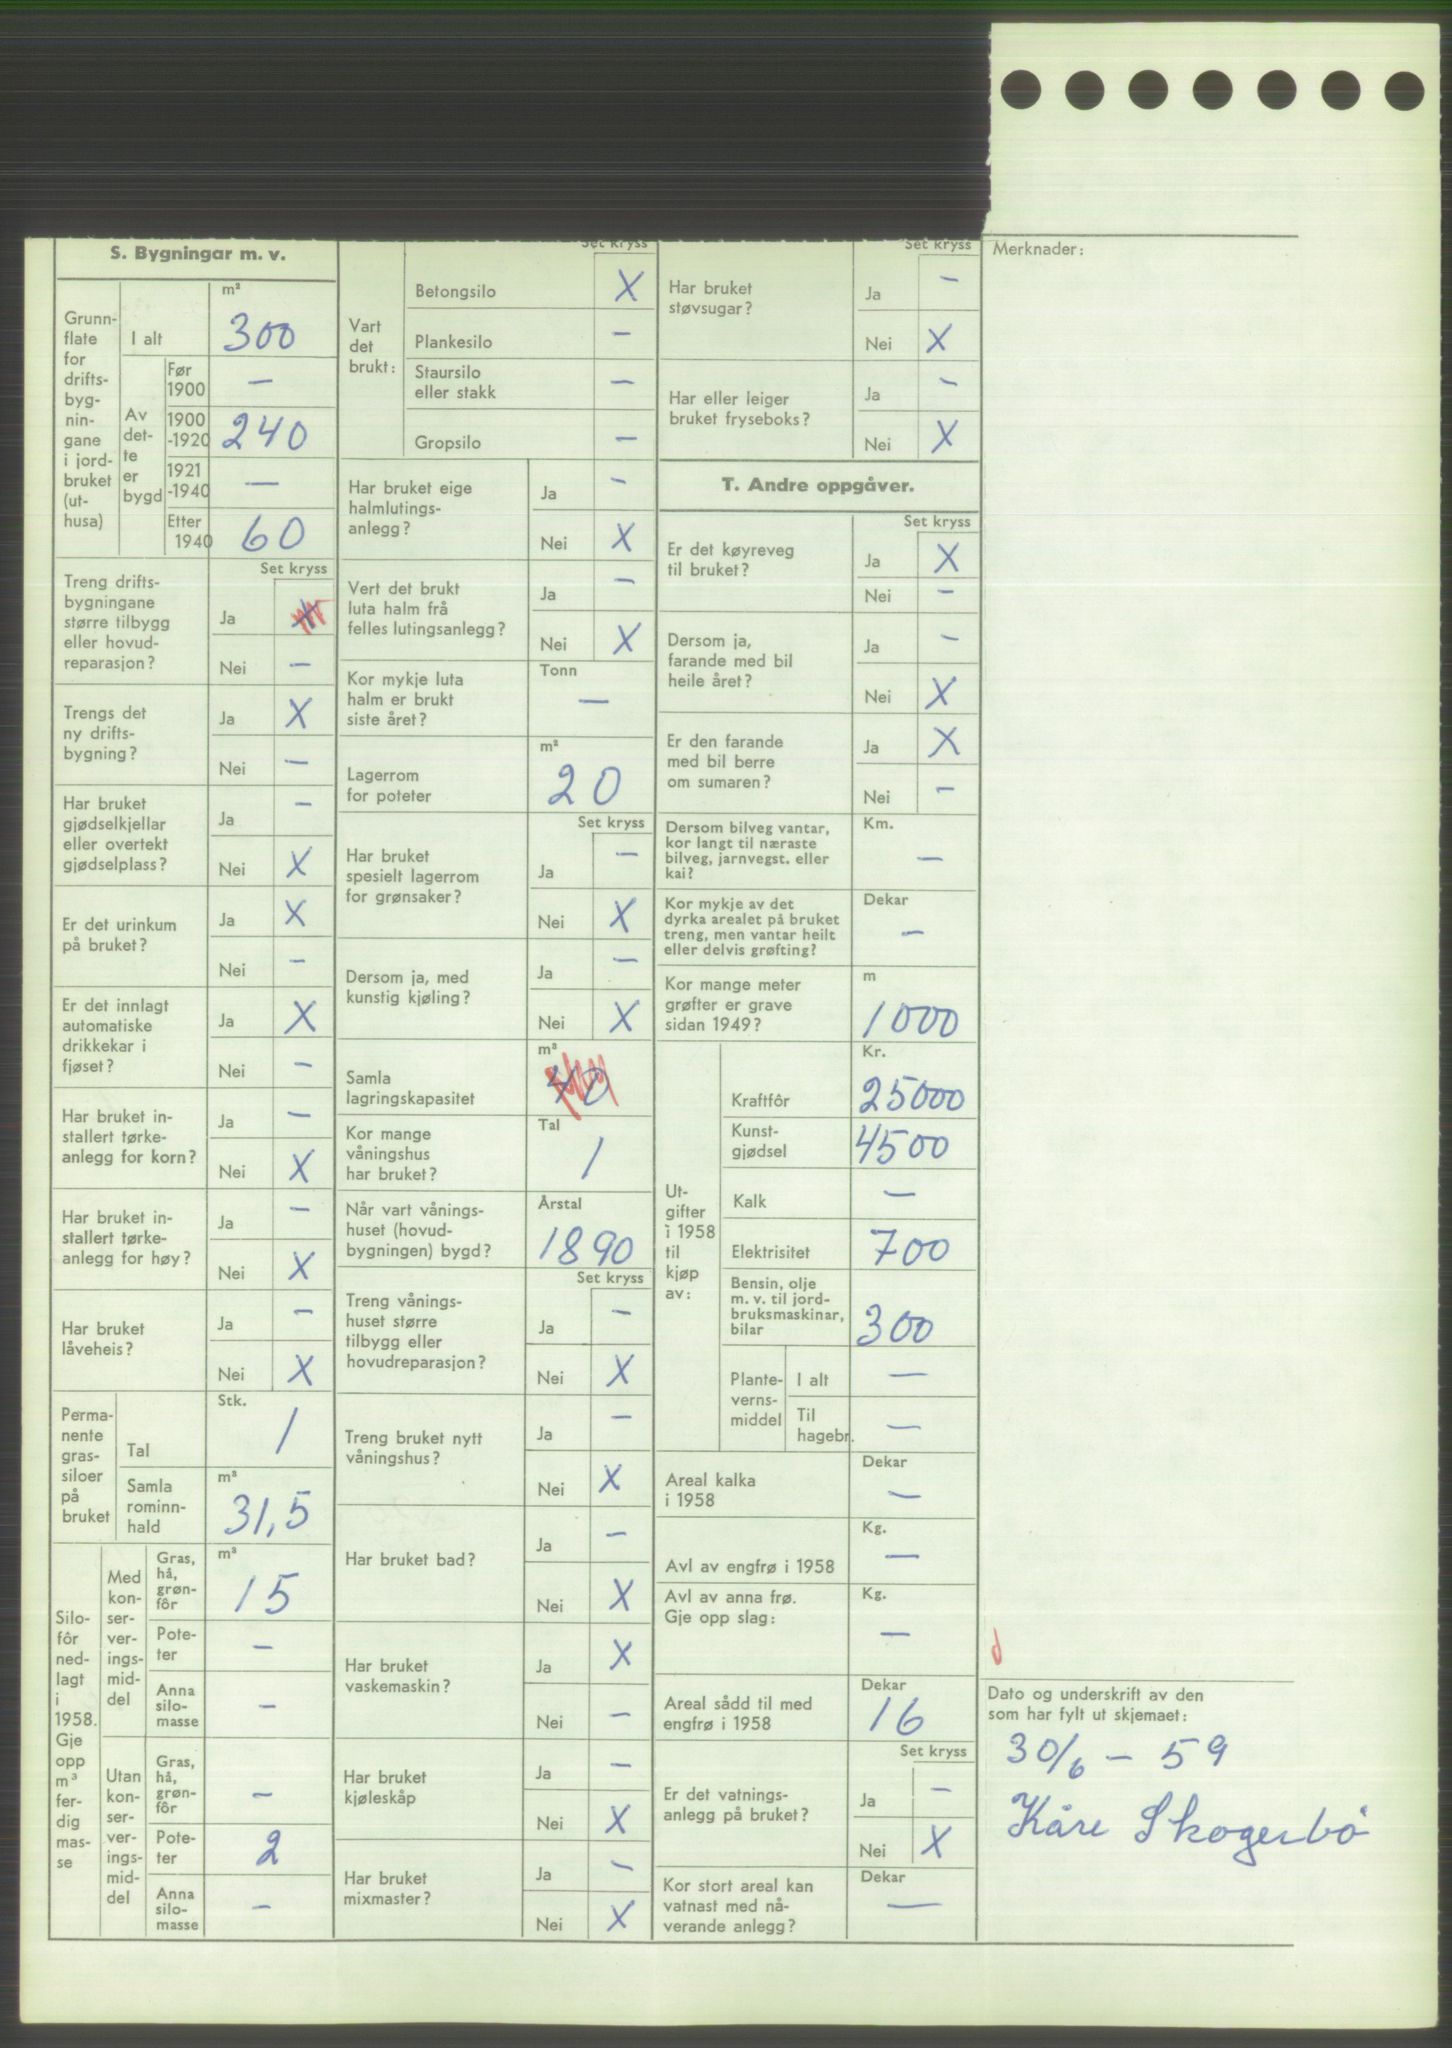 S. Bygningar m. v.
Grunn-
flate
for
drifts-
byg-
nin-
gane
i jord-
bruket
(ut-
husa)
m²
I alt
300
Av
det-
te
er
bygd
Før
1900
—
1900
-1920
240
1921
-1940
—
Etter
1940
60
Set kryss
Treng drifts-
bygningane
større tilbygg
eller hovud-
reparasjon?
Ja
X
Nei
—
Trengs det
ny drifts-
bygning?
Ja
X
Nei
—
Har bruket
gjødselkjellar
eller overtekt
gjødselplass?
Ja
—
Nei
X
Er det urinkum
på bruket?
Ja
X
Nei
—
Er det innlagt
automatiske
drikkekar i
fjøset?
Ja
X
Nei
—
Har bruket in-
stallert tørke-
anlegg for korn?
Ja
—
Nei
X
Har bruket in-
stallert tørke-
anlegg for høy?
Ja
—
Nei
X
Har bruket
låveheis?
Ja
—
Nei
X
Perma-
nente
gras-
siloer
på
bruket
Stk.
Tal
1
Samla
rominn-
hald
m³
31,5
Silo-
fôr
ned-
lagt
i
1958.
Gje
opp
m³
fer-
dig
mas-
se
Med
kon-
ser-
ver-
ings-
mid-
del
Gras,
hå,
grøn-
fôr
m³
15
Pote-
ter
—
Anna
silo-
masse
—
Utan
kon-
ser-
ver-
ings-
mid-
del
Gras,
hå,
grøn-
fôr
—
Pote-
ter
2
Anna
silo-
masse
—
Set kryss
Vart
det
brukt:
Betongsilo
X
Plankesilo
—
Staursilo
eller stakk
—
Gropsilo
—
Har bruket eige
halmlutings-
anlegg?
Ja
—
Nei
X
Vert det brukt
luta halm frå
felles lutingsanlegg?
Ja
—
Nei
X
Kor mykje luta
halm er brukt
siste året?
Tonn
—
Lagerrom
for poteter
m²
20
Set kryss
Har bruket
spesielt lagerrom
for grønsaker?
Ja
—
Nei
X
Dersom ja, med
kunstig kjøling?
Ja
—
Nei
X
Samla
lagringskapasitet
m³
40
Kor mange
våningshus
har bruket?
Tal
1
Når vart vånings-
huset (hovud-
bygningen) bygd?
Årstal
1890
Set kryss
Treng vånings-
huset større
tilbygg eller
hovudreparasjon?
Ja
—
Nei
X
Treng bruket nytt
våningshus?
Ja
—
Nei
X
Har bruket bad?
Ja
—
Nei
X
Har bruket
vaskemaskin?
Ja
X
Nei
—
Har bruket
kjøleskåp
Ja
—
Nei
X
Har bruket
mixmaster?
Ja
—
Nei
X
Set kryss
Har bruket
støvsugar?
Ja
—
Nei
X
Har eller leiger
bruket fryseboks?
Ja
—
Nei
X
T. Andre oppgåver.
Set kryss
Er det køyreveg
til bruket?
Ja
X
Nei
—
Dersom ja,
farande med bil
heile året?
Ja
—
Nei
X
Er den farande
med bil berre
om sumaren?
Ja
X
Nei
—
Dersom bilveg vantar,
kor langt til næraste
bilveg, jarnvegst. eller
kai?
Km.
—
Kor mykje av det
dyrka arealet på bruket
treng, men vantar heilt
eller delvis grøfting?
Dekar
—
Kor mange meter
grøfter er grave
sidan 1949?
m
1000
Ut-
gifter
i 1958
til
kjøp
av:
Kr.
Kraftfôr
25000
Kunst-
gjødsel
4500
Kalk
—
Elektrisitet
700
Bensin, olje
m. v. til jord-
bruksmaskinar,
bilar
300
Plante-
verns-
middel
I alt
—
Til
hagebr.
—
Areal kalka
i 1958
Dekar
—
Avl av engfrø i 1958
Kg.
—
Avl av anna frø.
Gje opp slag:
Kg.
—
Areal sådd til med
engfrø i 1958
Dekar
16
Set kryss
Er det vatnings-
anlegg på bruket?
Ja
—
Nei
X
Kor stort areal kan
vatnast med nå-
verande anlegg?
Dekar
—
Merknader:
d
Dato og underskrift av den
som har fylt ut skjemaet:
30/6 – 59
Kåre Skogerbö